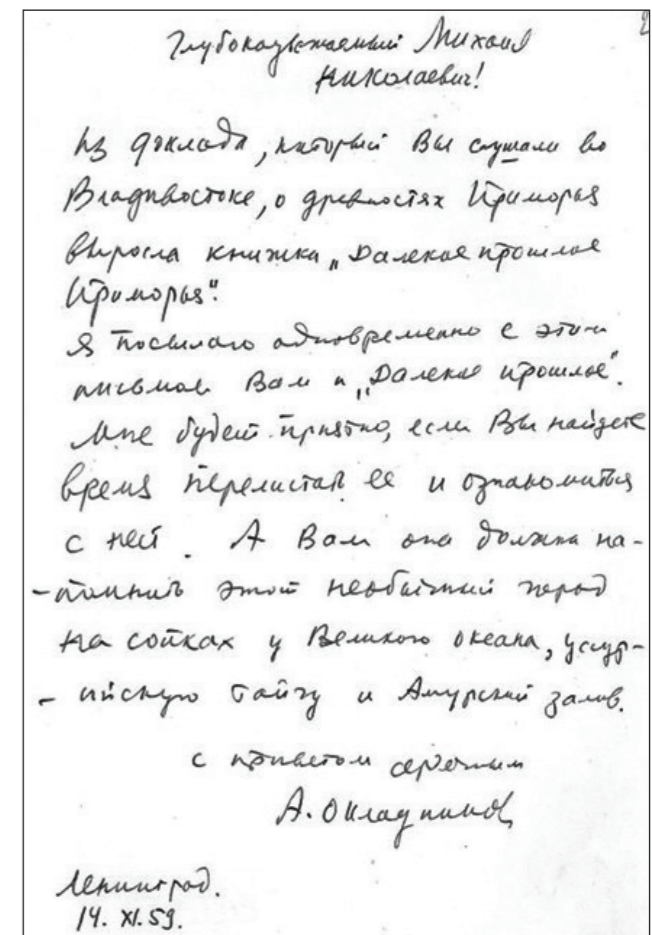 2
Глубокоуважаемый Михаил
Николаевич!
Из доклада, который Вы слушали во
Владивостоке, о древностях Приморья
выросла книжка „Далекое прошлое
Приморья".
Я посылаю одновременно с этим
письмом Вам и „Далекое прошлое".
Мне будет приятно, если Вы найдете
время перелистать ее и ознакомиться
с ней. А Вам она должна на-
-помнить этот необычный город
на сопках у Великого океана, уссур-
- ийскую тайгу и Амурский залив.
с приветом сердечным
А. Окладников
Ленинград.
14. XI. 59.